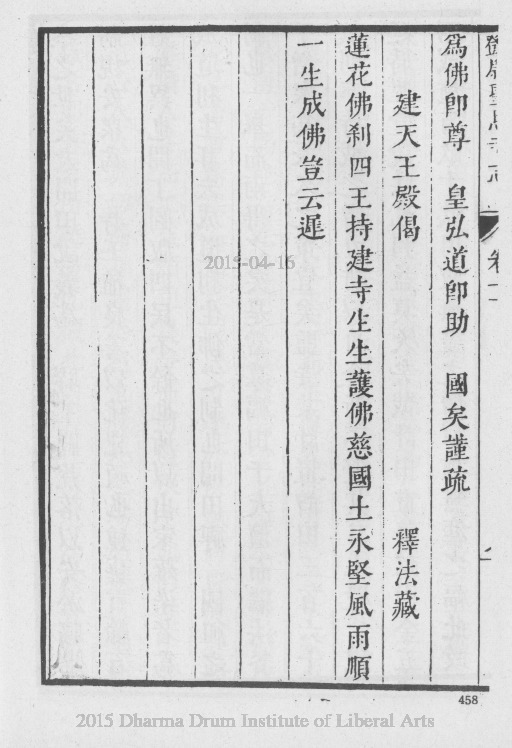 鄧尉聖恩寺志 卷十一
爲佛卽尊　皇弘道卽助　國矣謹疏
建天王殿偈　釋法藏
蓮花佛刹四王持建寺生生護佛慈國土永堅風雨順
一生成佛豈云遲
2015-04-16
458
2015 Dharma Drum Institute of Liberal Arts